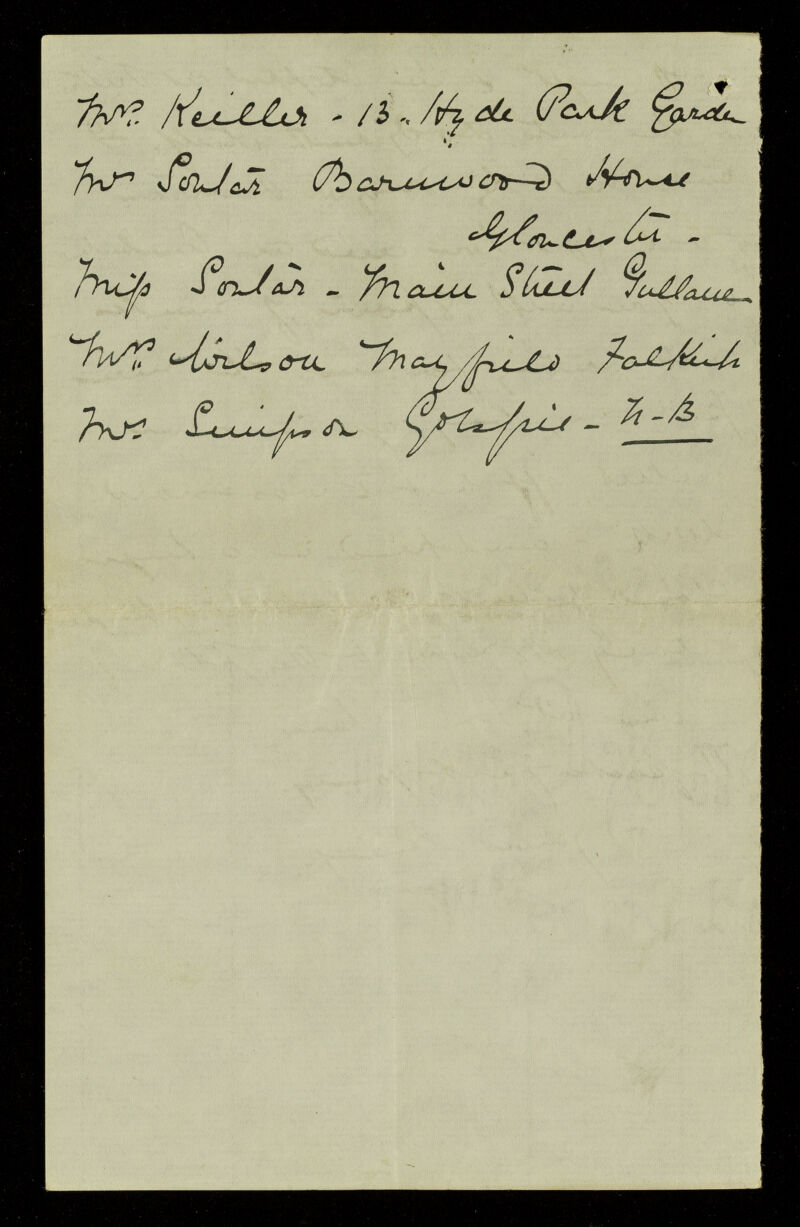 Mrs. Keiller - 13. Hyde Park Garden
Mrs Soutar Barnwood House
Gloucester -
Miss Soutar - Main Street Gullane
Mrs. Wilson Mayfield Falkirk
Mrs. Simpson Golspie - N-B